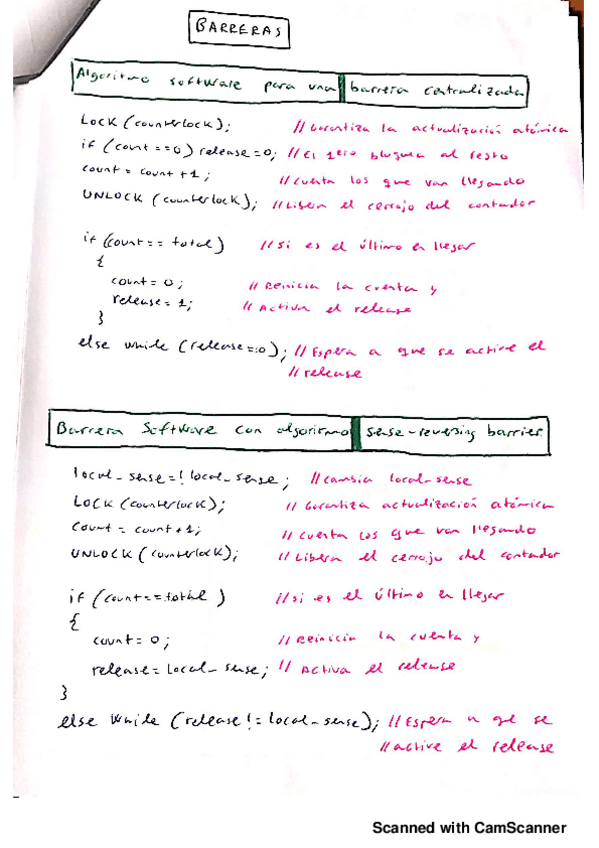 BARRERAS
Algoritmo software para una barrera centralizada
LOCK (counterlock); // Garantiza la actualización atómica
if (count ==0) release=0; // El 1ero bloquea al resto
count = count +1; // Cuenta los que van llegando
UNLOCK (counterlock); // Libera el cerrojo del contador
if (count== total) // Si es el último en llegar
{
count= 0; // Reinicia la cuenta y
release= 1; // Activa el release
}
else while (release==0); // Espera a que se active el
// release
Barrera Software con algoritmo sense-reversing barrier
local_sense=! local_sense; // Cambia local_sense
LOCK (counterlock); // Garantiza actualización atómica
Count = count+1; // Cuenta los que van llegando
UNLOCK (counterlock); // Libera el cerrojo del contador
if (count==total) // si es el último en llegar
{
count= 0; // Reinicia la cuenta y
release= local_sense; // Activa el release
}
else while (release!= local_sense); // Espera a que se
// active el release
Scanned with CamScanner